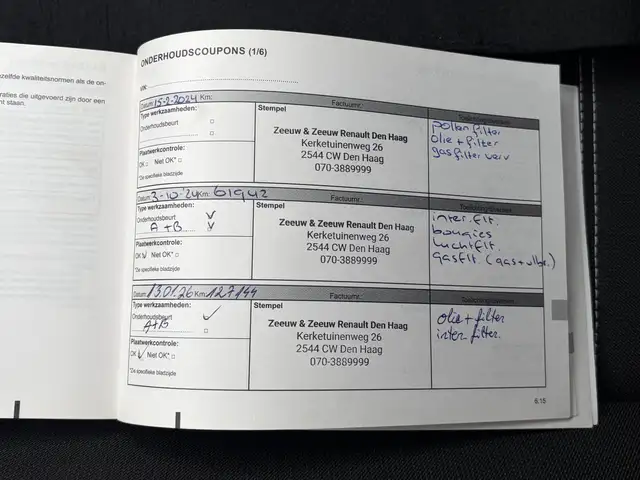 zelfde kwaliteitsnormen als de on-
raties die uitgevoerd zijn door een
nt staan.
ONDERHOUDSCOUPONS (1/6)
VIN:
Datum: 15-2-2024 Km: Factuurnr.:
Type werkzaamheden:
Onderhoudsbeurt □
□
Plaatwerkcontrole:
OK □ Niet OK* □
*Zie specifieke bladzijde
Stempel
Zeeuw & Zeeuw Renault Den Haag
Kerketuinenweg 26
2544 CW Den Haag
070-3889999
pollenfilter
olie + filter
gasfilter verv
Datum: 3-10-24 Km: 61942 Factuurnr.:
Type werkzaamheden:
Onderhoudsbeurt ✓
A+B ✓
Plaatwerkcontrole:
OK ✓ Niet OK* □
*Zie specifieke bladzijde
Stempel
Zeeuw & Zeeuw Renault Den Haag
Kerketuinenweg 26
2544 CW Den Haag
070-3889999
inter.flt.
bougies
luchtflt.
gasflt. (gas+vlbr.)
Datum: 13.01.26 Km: 127144 Factuurnr.:
Type werkzaamheden:
Onderhoudsbeurt ✓
A+B □
Plaatwerkcontrole:
OK ✓ Niet OK* □
*Zie specifieke bladzijde
Stempel
Zeeuw & Zeeuw Renault Den Haag
Kerketuinenweg 26
2544 CW Den Haag
070-3889999
olie + filter
inter.filter.
6.15